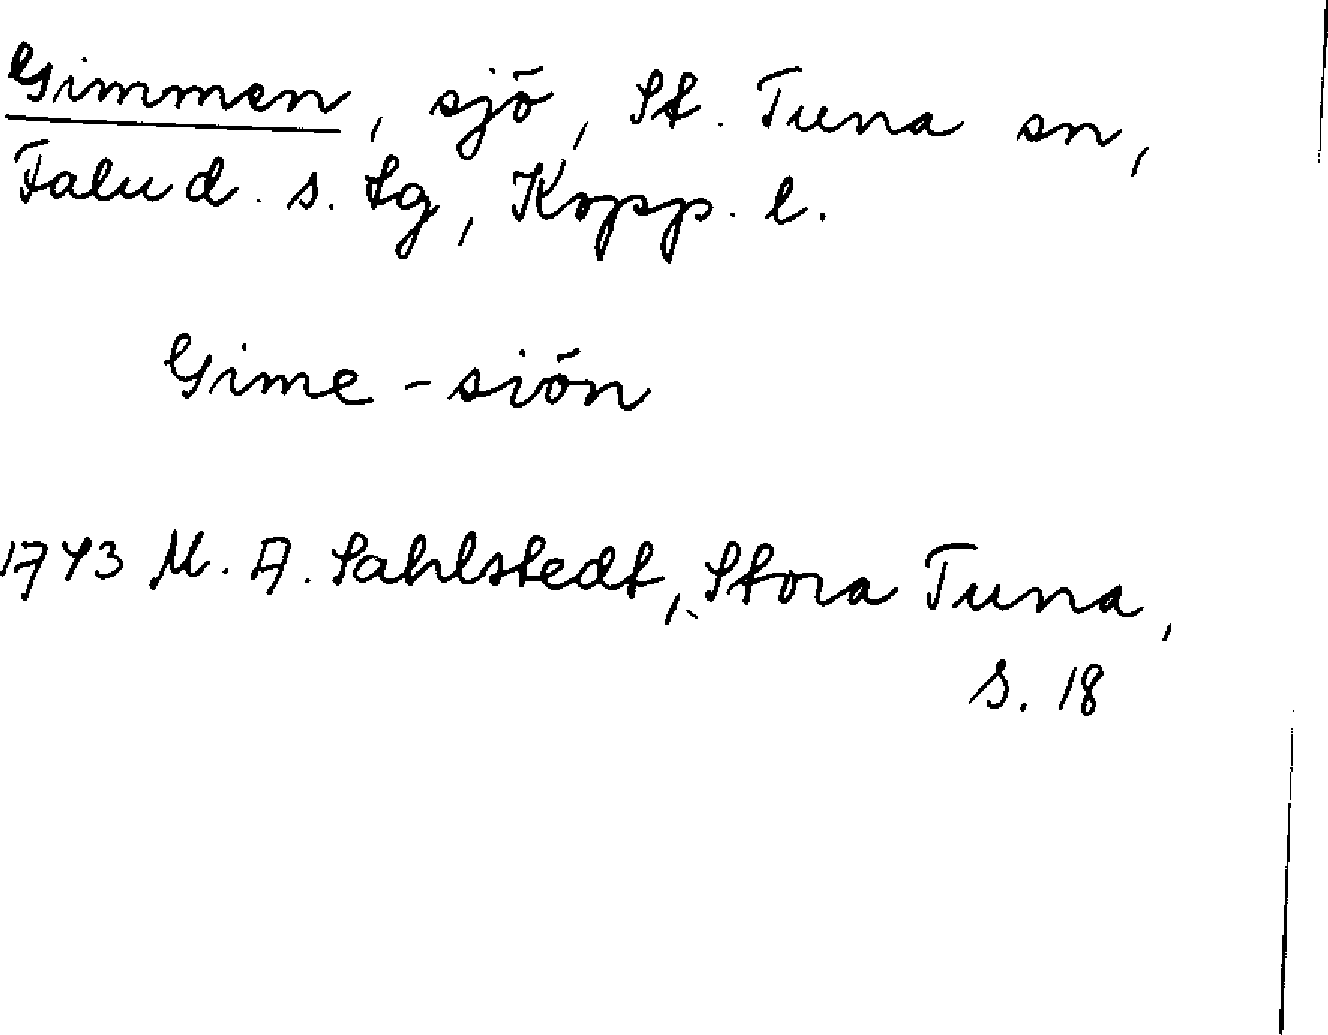 Gimmen, sjö, St. Tuna sn,
Falu d. s. tg, Kopp. l.
Gime-siön
1743 M. A. Sahlstedt, Stora Tuna,
s. 18